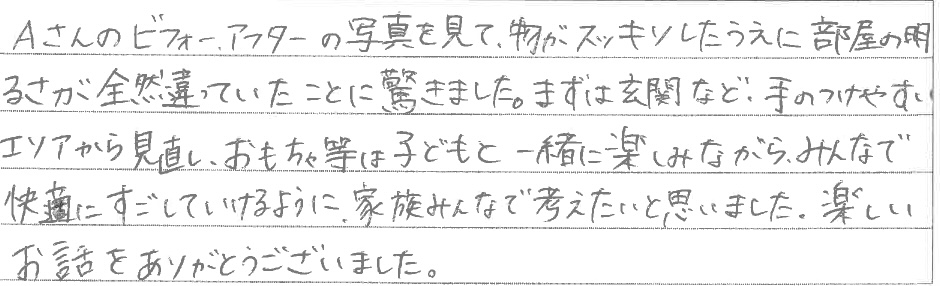 Aさんのビフォー、アフターの写真を見て、物がスッキリしたうえに部屋の明
るさが全然違っていたことに驚きました。まずは玄関など、手のつけやすい
エリアから見直し、おもちゃ等は子どもと一緒に楽しみながら、みんなで
快適にすごしていけるように、家族みんなで考えたいと思いました。楽しい
お話をありがとうございました。